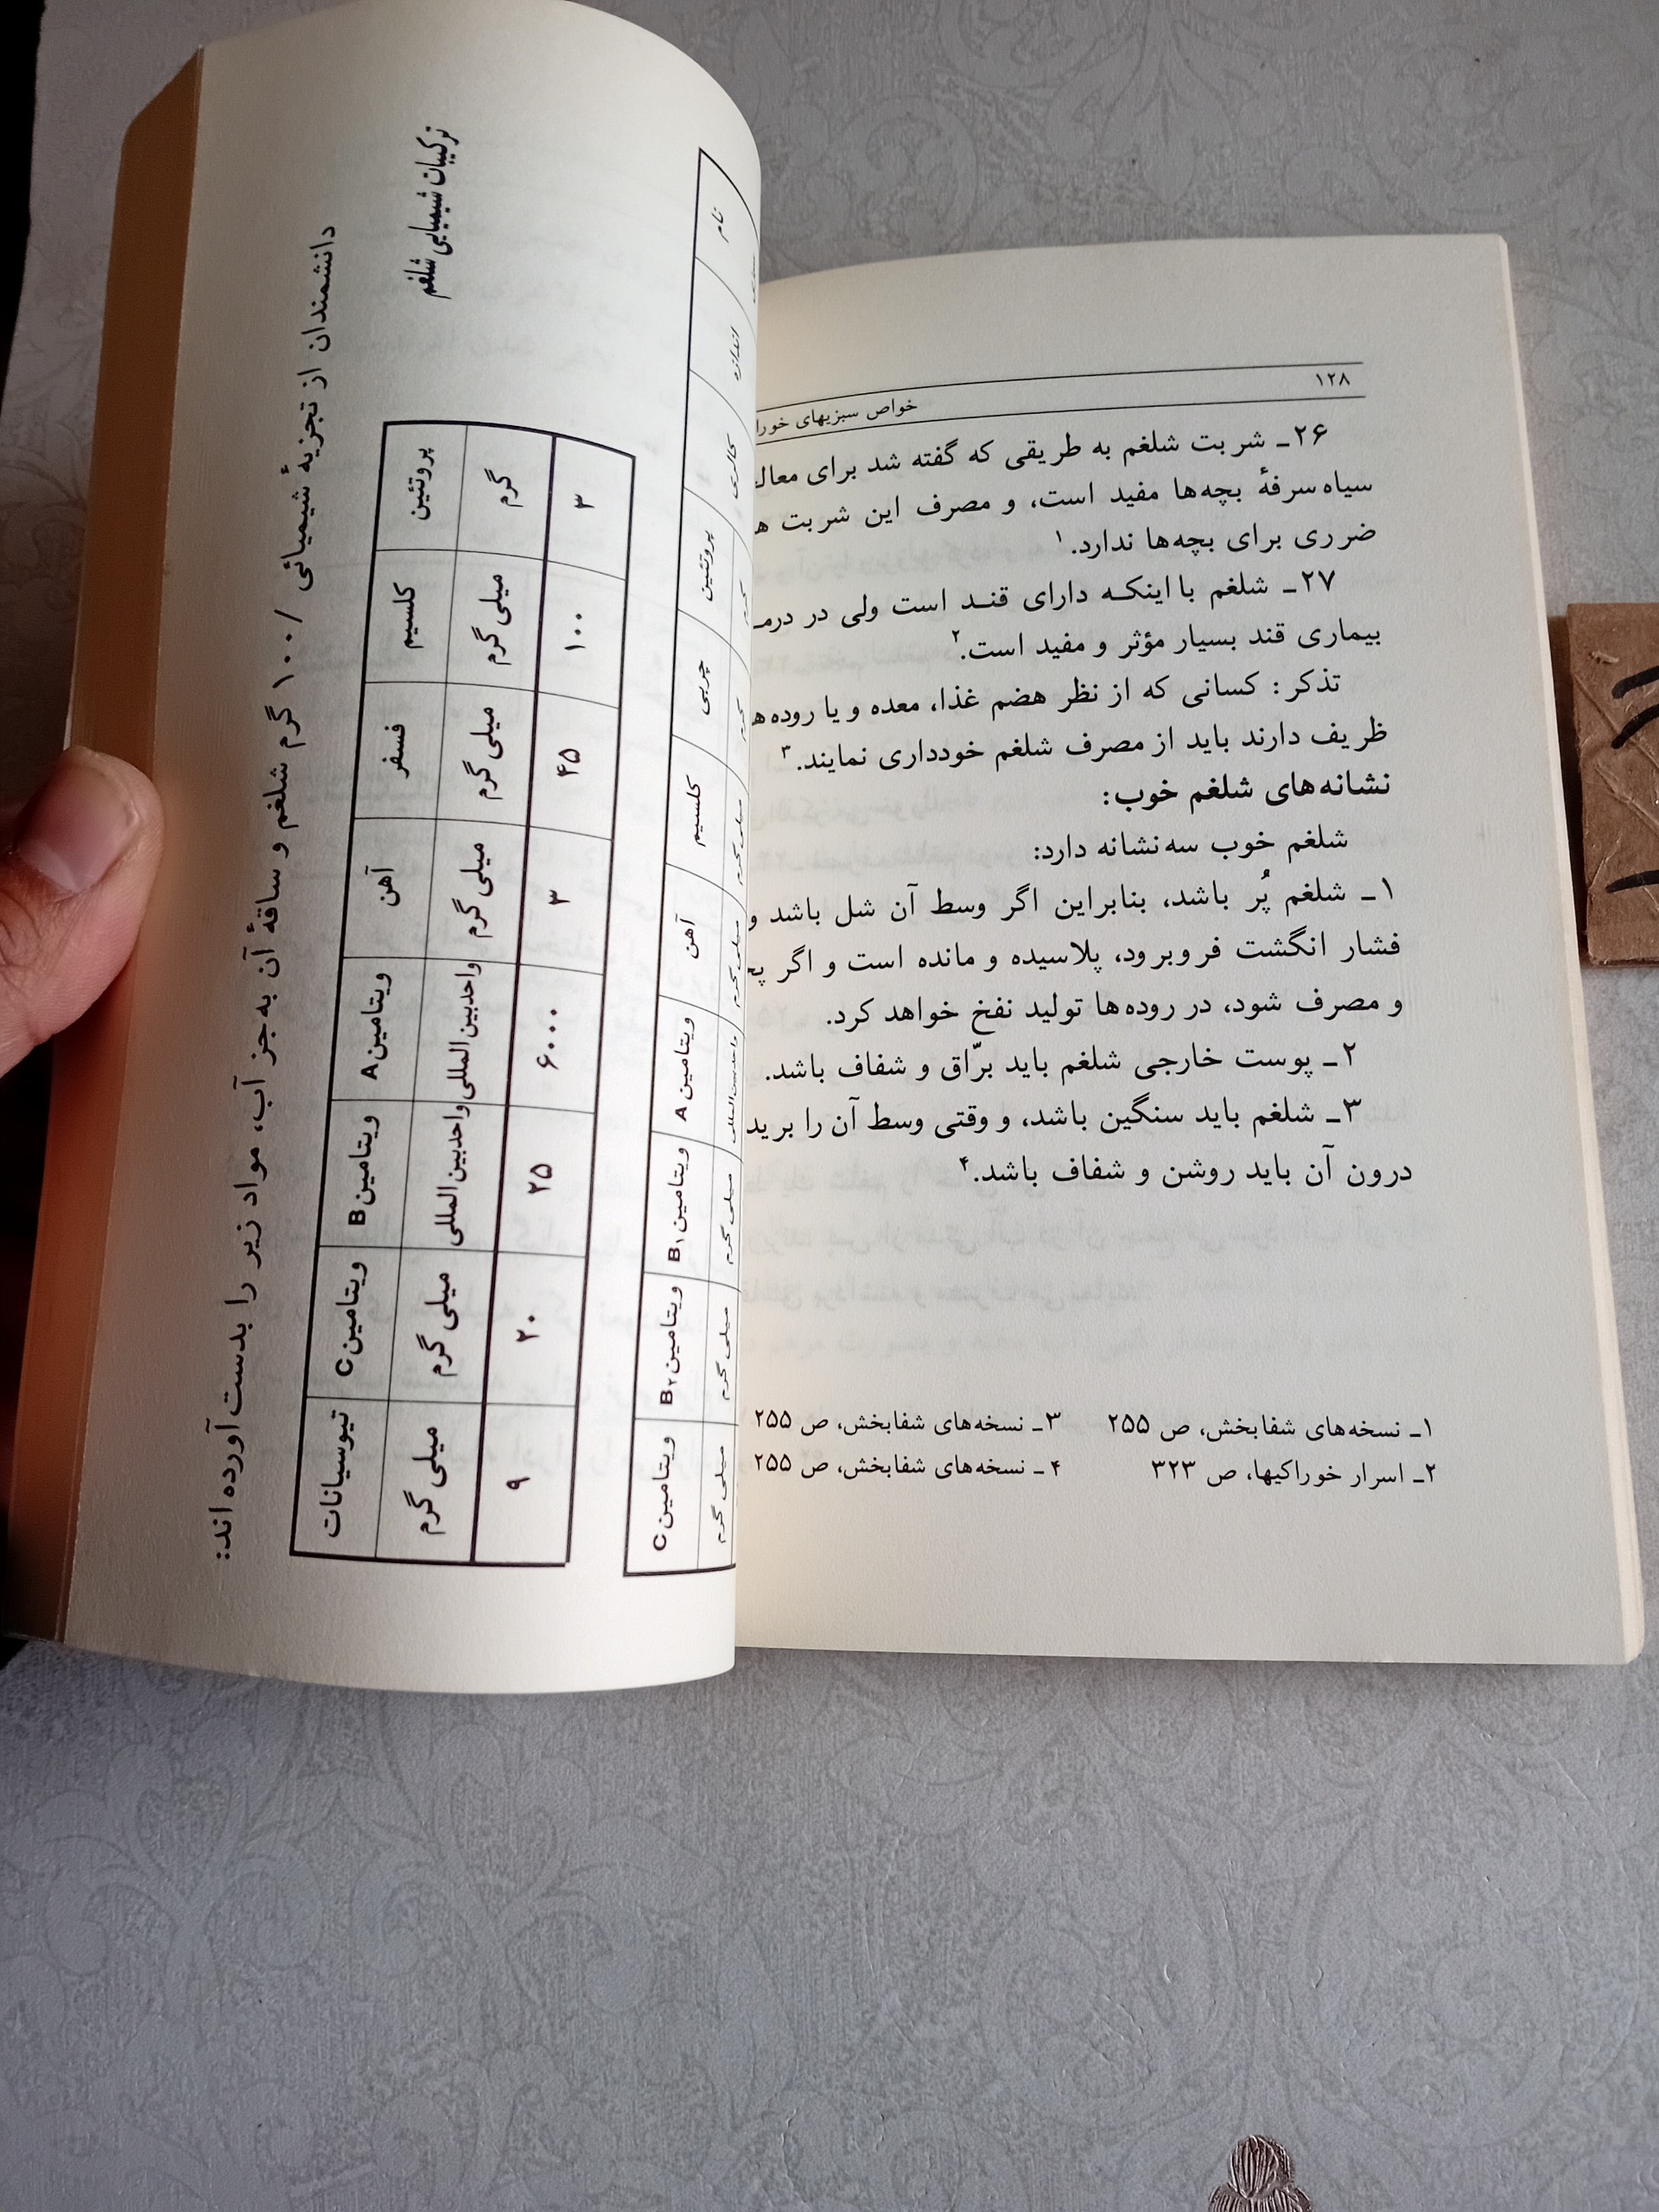 ۱۲۸
خواص سبزیهای
۲۶ـ شربت شلغم به طریقی که گفته شد برای
سیاه سرفهٔ بچه‌ها مفید است، و مصرف این شربت
ضرری برای بچه‌ها ندارد.۱
۲۷ـ شلغم با اینکه دارای قند است ولی در
بیماری قند بسیار مؤثر و مفید است.۲
تذکر: کسانی که از نظر هضم غذا، معده و یا
ظریف دارند باید از مصرف شلغم خودداری نمایند.۳
نشانه‌های شلغم خوب:
شلغم خوب سه نشانه دارد:
۱ـ شلغم پُر باشد، بنابراین اگر وسط آن شل باشد و
فشار انگشت فرو برود، پلاسیده و مانده است و اگر
و مصرف شود، در روده‌ها تولید نفخ خواهد کرد.
۲ـ پوست خارجی شلغم باید برّاق و شفاف باشد.
۳ـ شلغم باید سنگین باشد، و وقتی وسط آن را
درون آن باید روشن و شفاف باشد.۴
۱ـ نسخه‌های شفابخش، ص ۲۵۵ ۳ـ نسخه‌های شفابخش، ص ۲۵۵
۲ـ اسرار خوراکیها، ص ۳۲۳ ۴ـ نسخه‌های شفابخش، ص ۲۵۵
دانشمندان از تجزیهٔ شیمیائی /۱۰۰ گرم شلغم و ساقهٔ آن به جز آب، مواد زیر را بدست آورده اند:
پروتئین کلسیم فسفر آهن ویتامین A ویتامین B ویتامین C تیوسیانات
گرم میلی گرم میلی گرم میلی گرم واحد بین المللی واحد بین المللی میلی گرم میلی گرم
۳ ۱۰۰ ۴۵ ۳ ۶۰۰۰ ۲۵ ۲۰ ۹
ترکیبات شیمیایی شلغم
نام اندازه کالری پروتئین چربی کلسیم آهن ویتامین A ویتامین B۱ ویتامین B۲ ویتامین C
گرم گرم میلی گرم میلی گرم واحد بین المللی میلی گرم میلی گرم میلی گرم